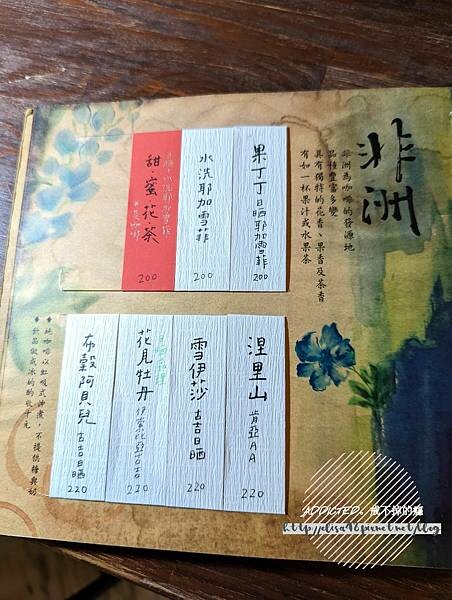 非洲
非洲為咖啡的發源地
品種豐富多變
具有獨特的花香、果香及茶香
有如一杯果汁或水果茶
果丁丁日晒耶加雪菲
200
水洗耶加雪菲
200
甜·蜜·花·茶
200
涅里山 肯亞AA
220
雪伊莎 古吉日晒
220
花見牡丹 伊索比亞古吉
220
布穀阿貝兒 古吉日晒
220
◆純咖啡以虹吸式沖煮,不提供糖與奶
◆飲品做成冰的酌收
ADDICTED、戒不掉的癮
http://elisa98.pixnet.net/blog